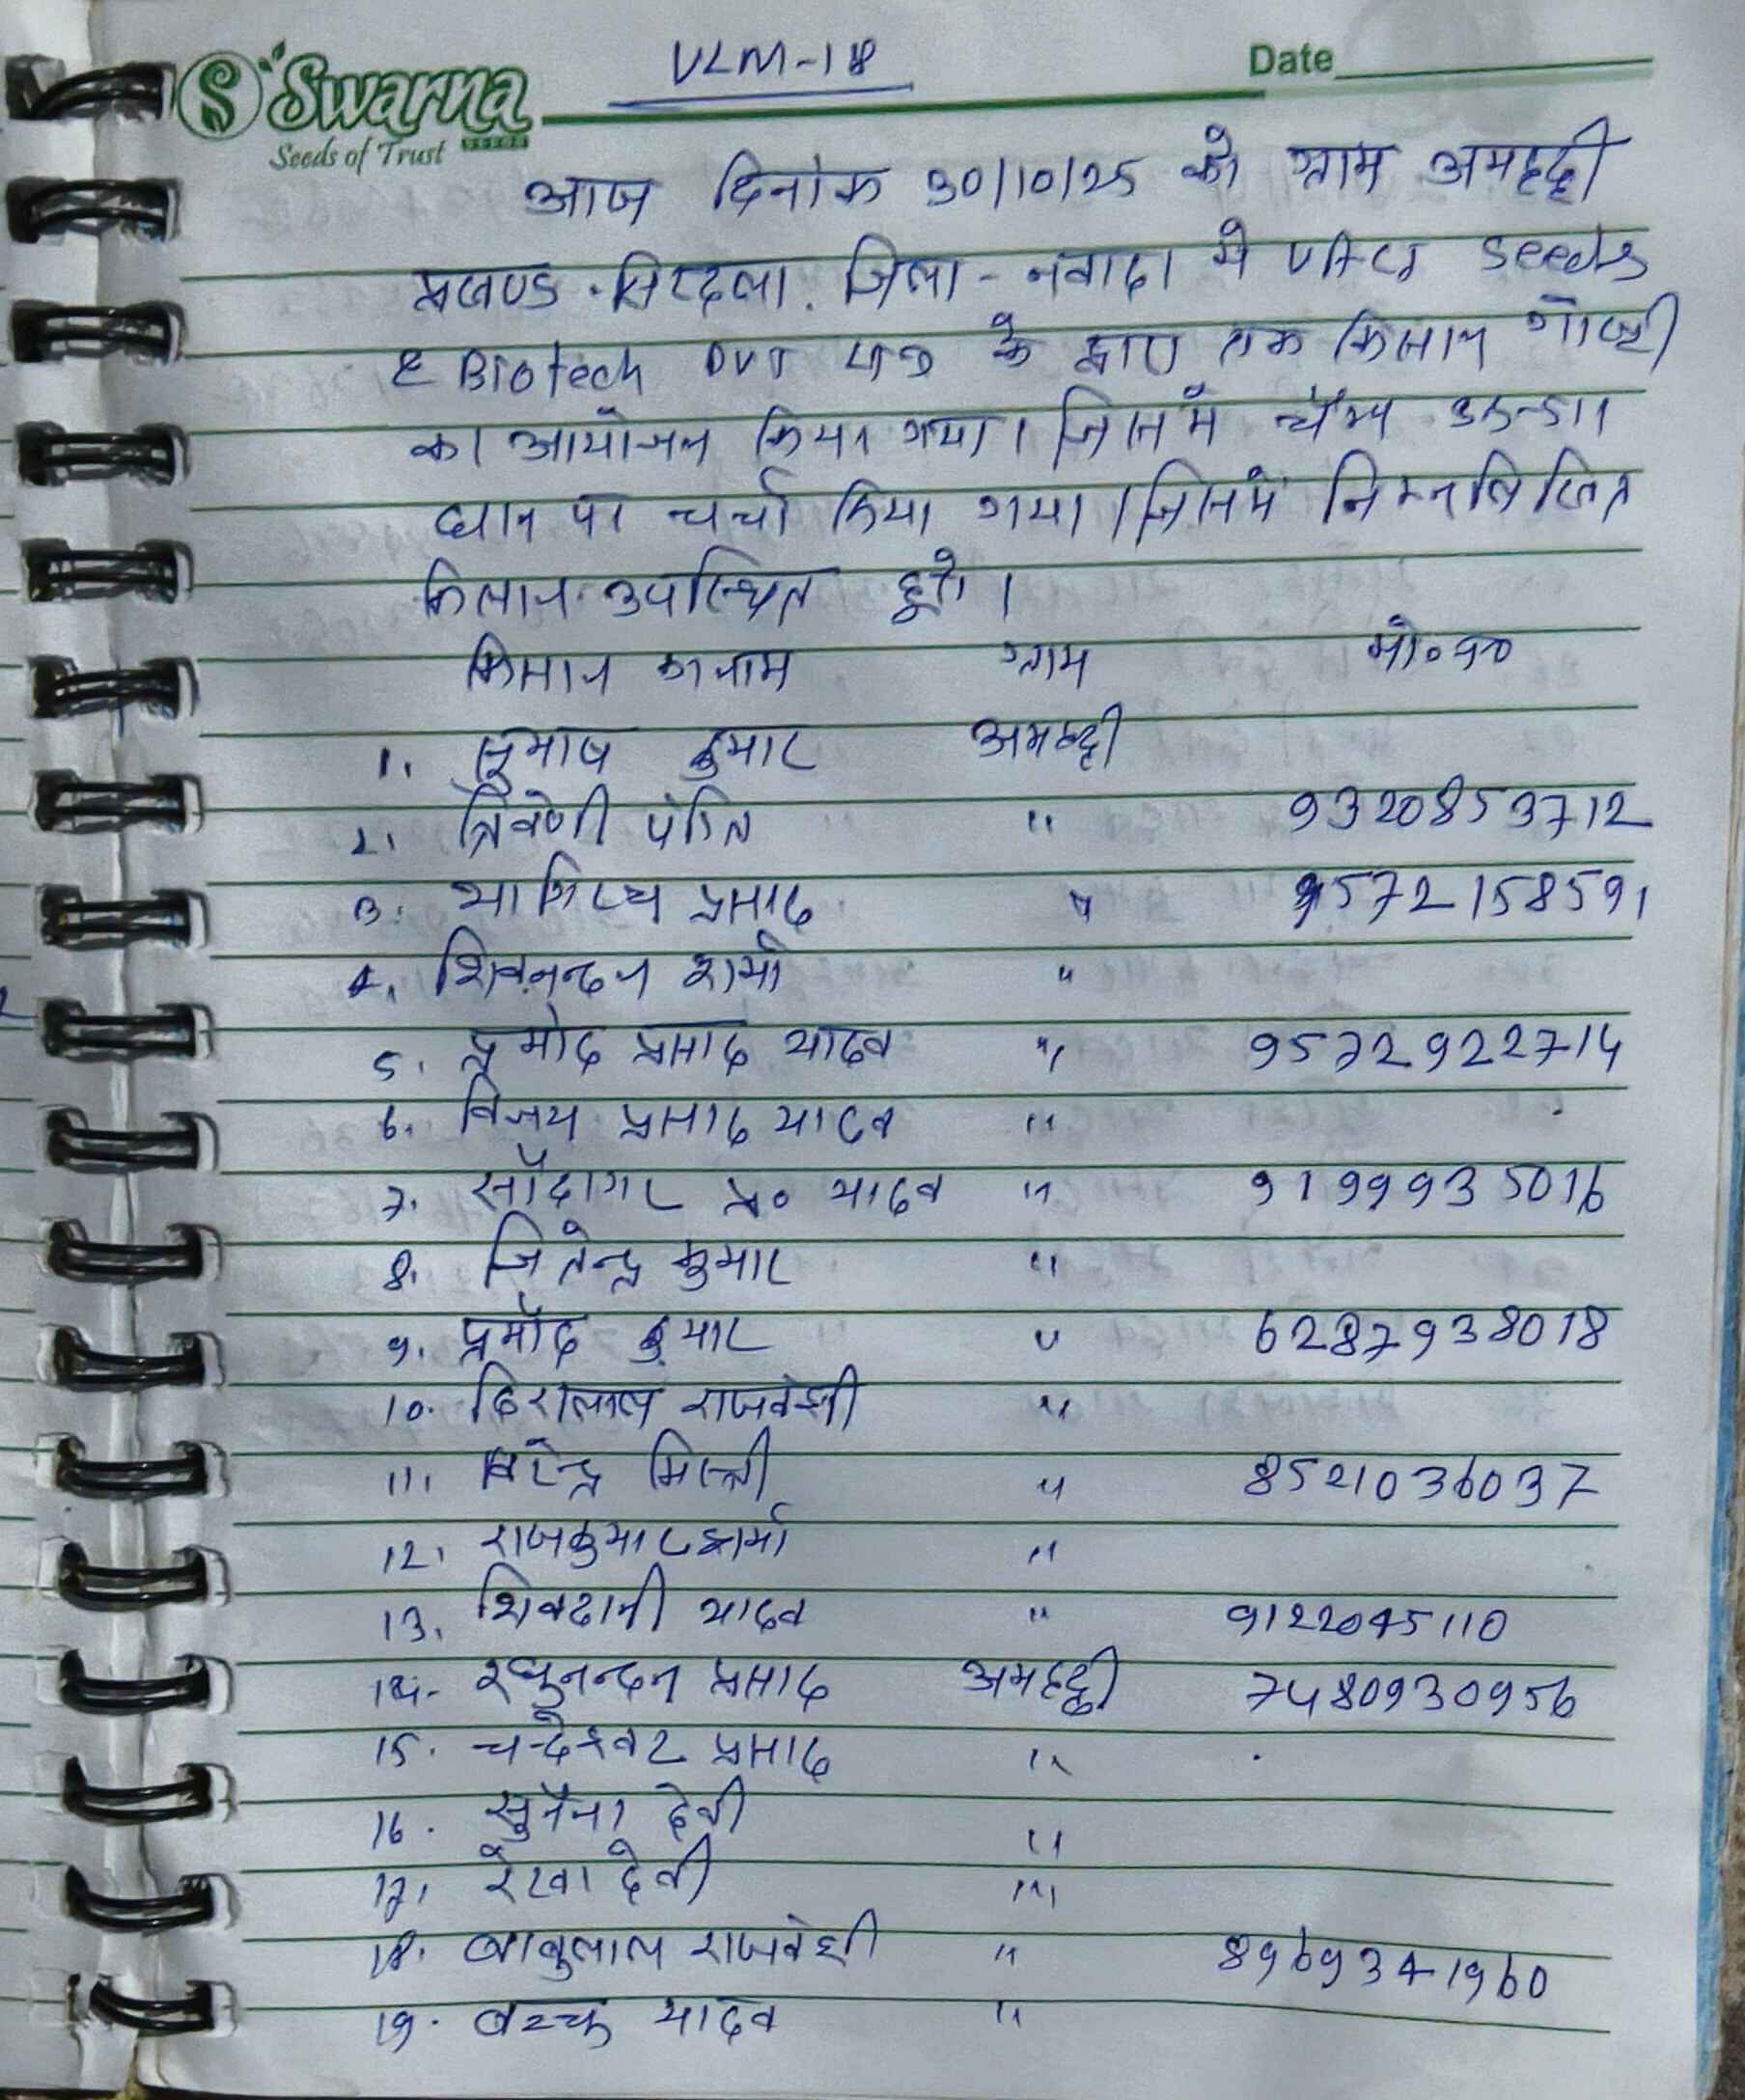 Swarna
Seeds of Trust
SEEDS
VLM-18
Date
आज दिनांक 30/10/25 को ग्राम अमहद्दी
प्रखण्ड - सिरदला. जिला - नवादा में UAG seeds
& Biotech PVT LTD के द्वारा एक किसान गोष्ठी
का आयोजन किया गया। जिसमें
धान पर चर्चा किया गया। जिसमें निम्नलिखित
किसान उपस्थित हुये।
किसान का नाम ग्राम मो० न०
1. सुभाष कुमार अमहद्दी
2. त्रिवेणी पंडित " 9320853712
3. प्रसाद " 9572158591
4. शिवनन्दन शर्मा "
5. प्रमोद प्रसाद यादव " 9572922714
6. विजय प्रसाद यादव "
7. सौदागर प्र० यादव " 9199935016
8. जितेन्द्र कुमार "
9. प्रमोद कुमार " 6287938018
10. हिरालाल राजवंशी "
11. विरेन्द्र मिस्त्री " 8521036037
12. राजकुमार शर्मा "
13. शिवदानी यादव " 9122045110
14. रघुनन्दन प्रसाद अमहद्दी 7480930956
15. चन्देश्वर प्रसाद "
16. सुनैना देवी "
17. रेखा देवी "
18. बाबुलाल राजवंशी " 8969341960
19. यादव "